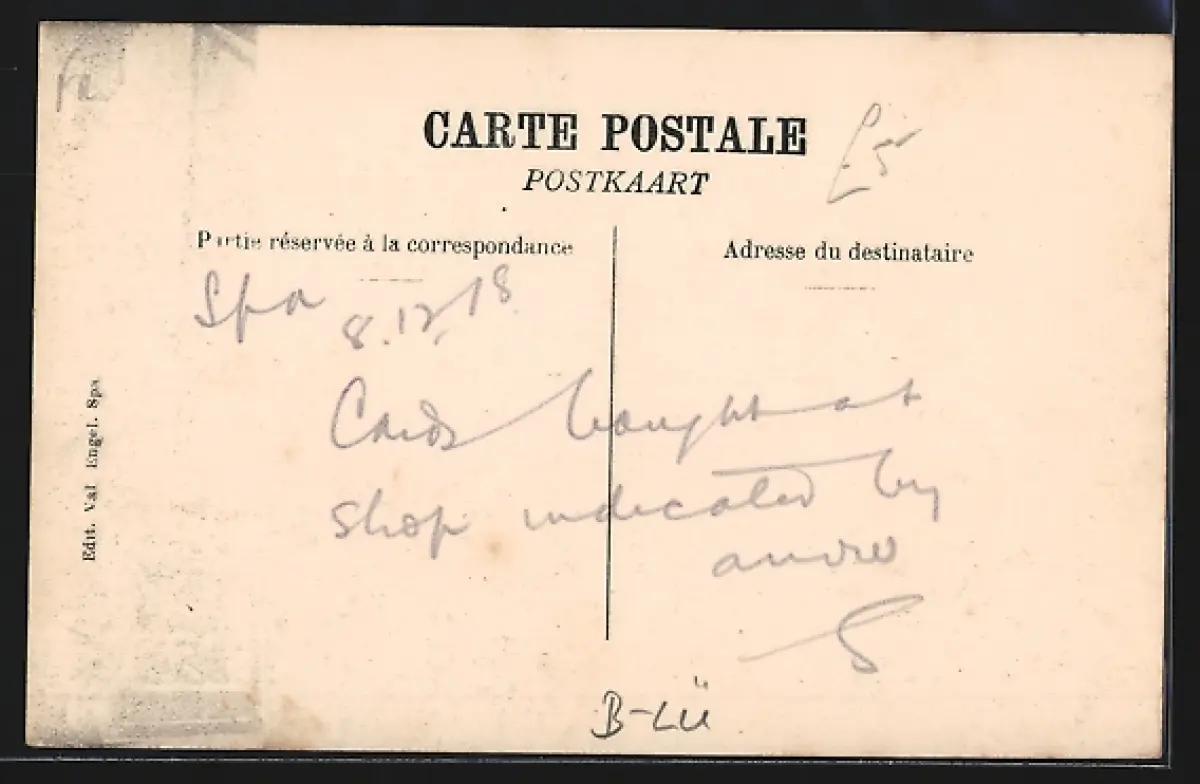 CARTE POSTALE
POSTKAART
Partie réservée à la correspondance
Adresse du destinataire
Spa 8.12.18
Cards bought at
shop indicated by
andre
S
Edit. Val Engel. Spa
B-LÜ